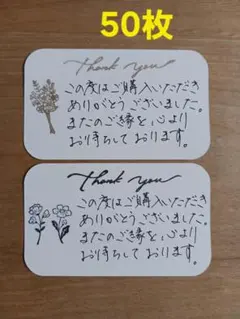 50枚
Thank you
この度はご購入いただき
ありがとうございました。
またのご縁を心より
お待ちしております。
Thank you
この度はご購入いただき
ありがとうございました。
またのご縁を心より
お待ちしております。